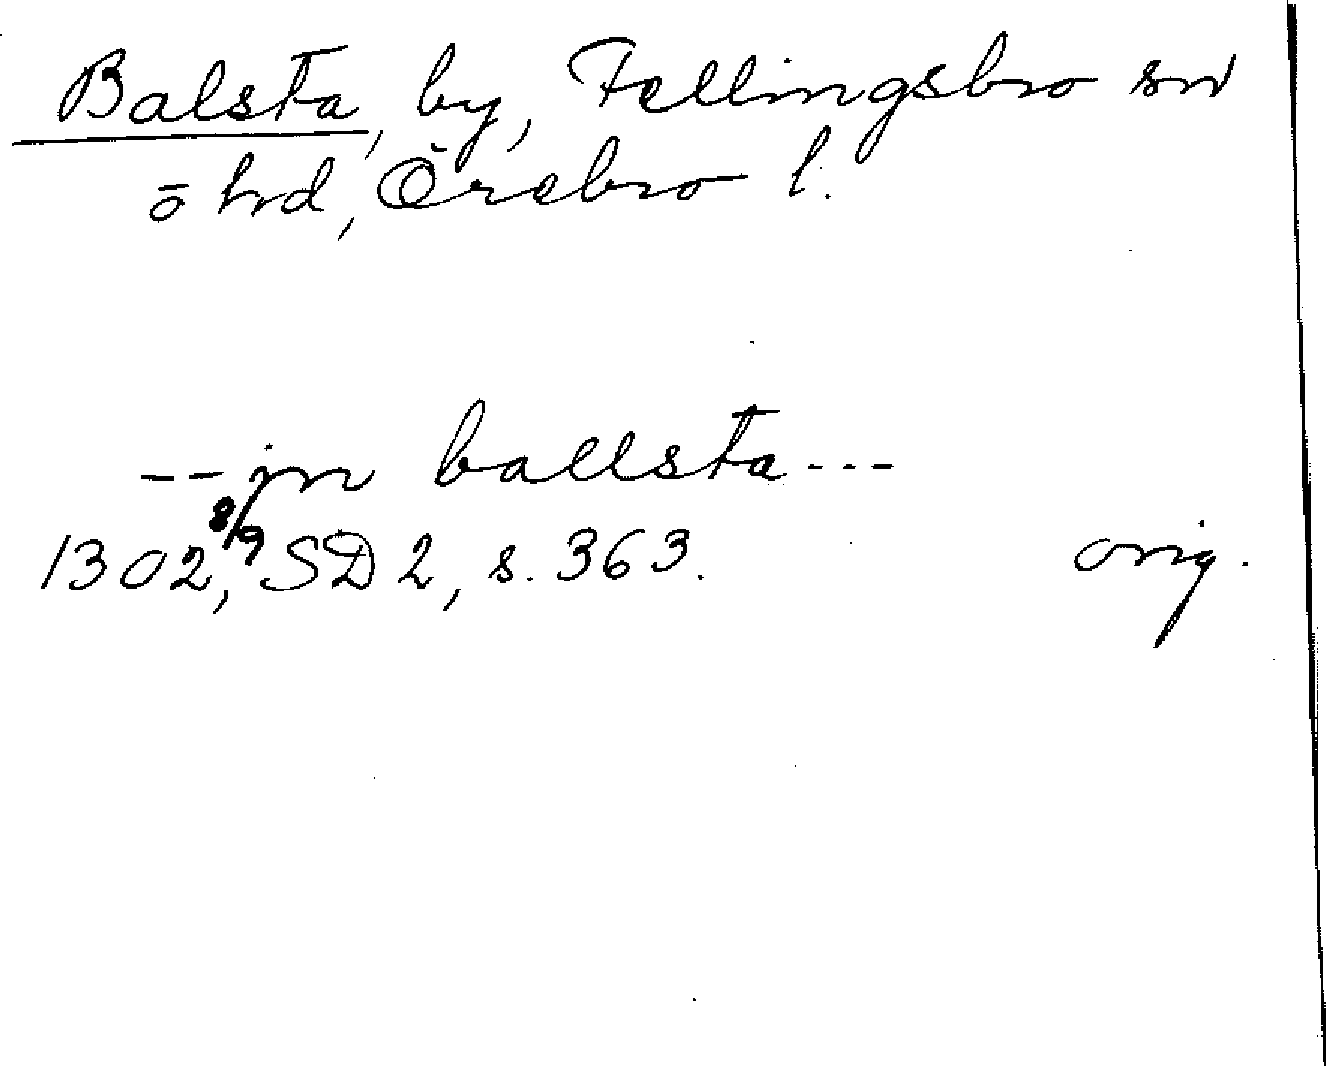 Balsta, by, Fellingsbro sn
o hd, Örebro l.
-- in ballsta ---
1302 8/9, SD 2, s. 363. orig.